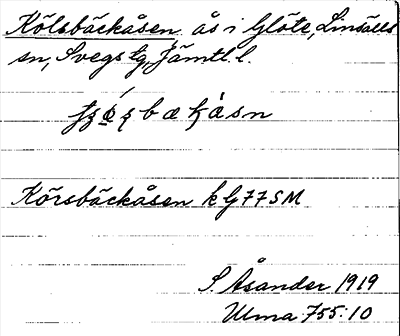 Kölsbäckåsen ås i Glöte, Linsälls
sn, Svegs tg, Jämtl. l.
Körsbäckåsen k G 77 SM
S. Åsander 1919
Ulma 755:10